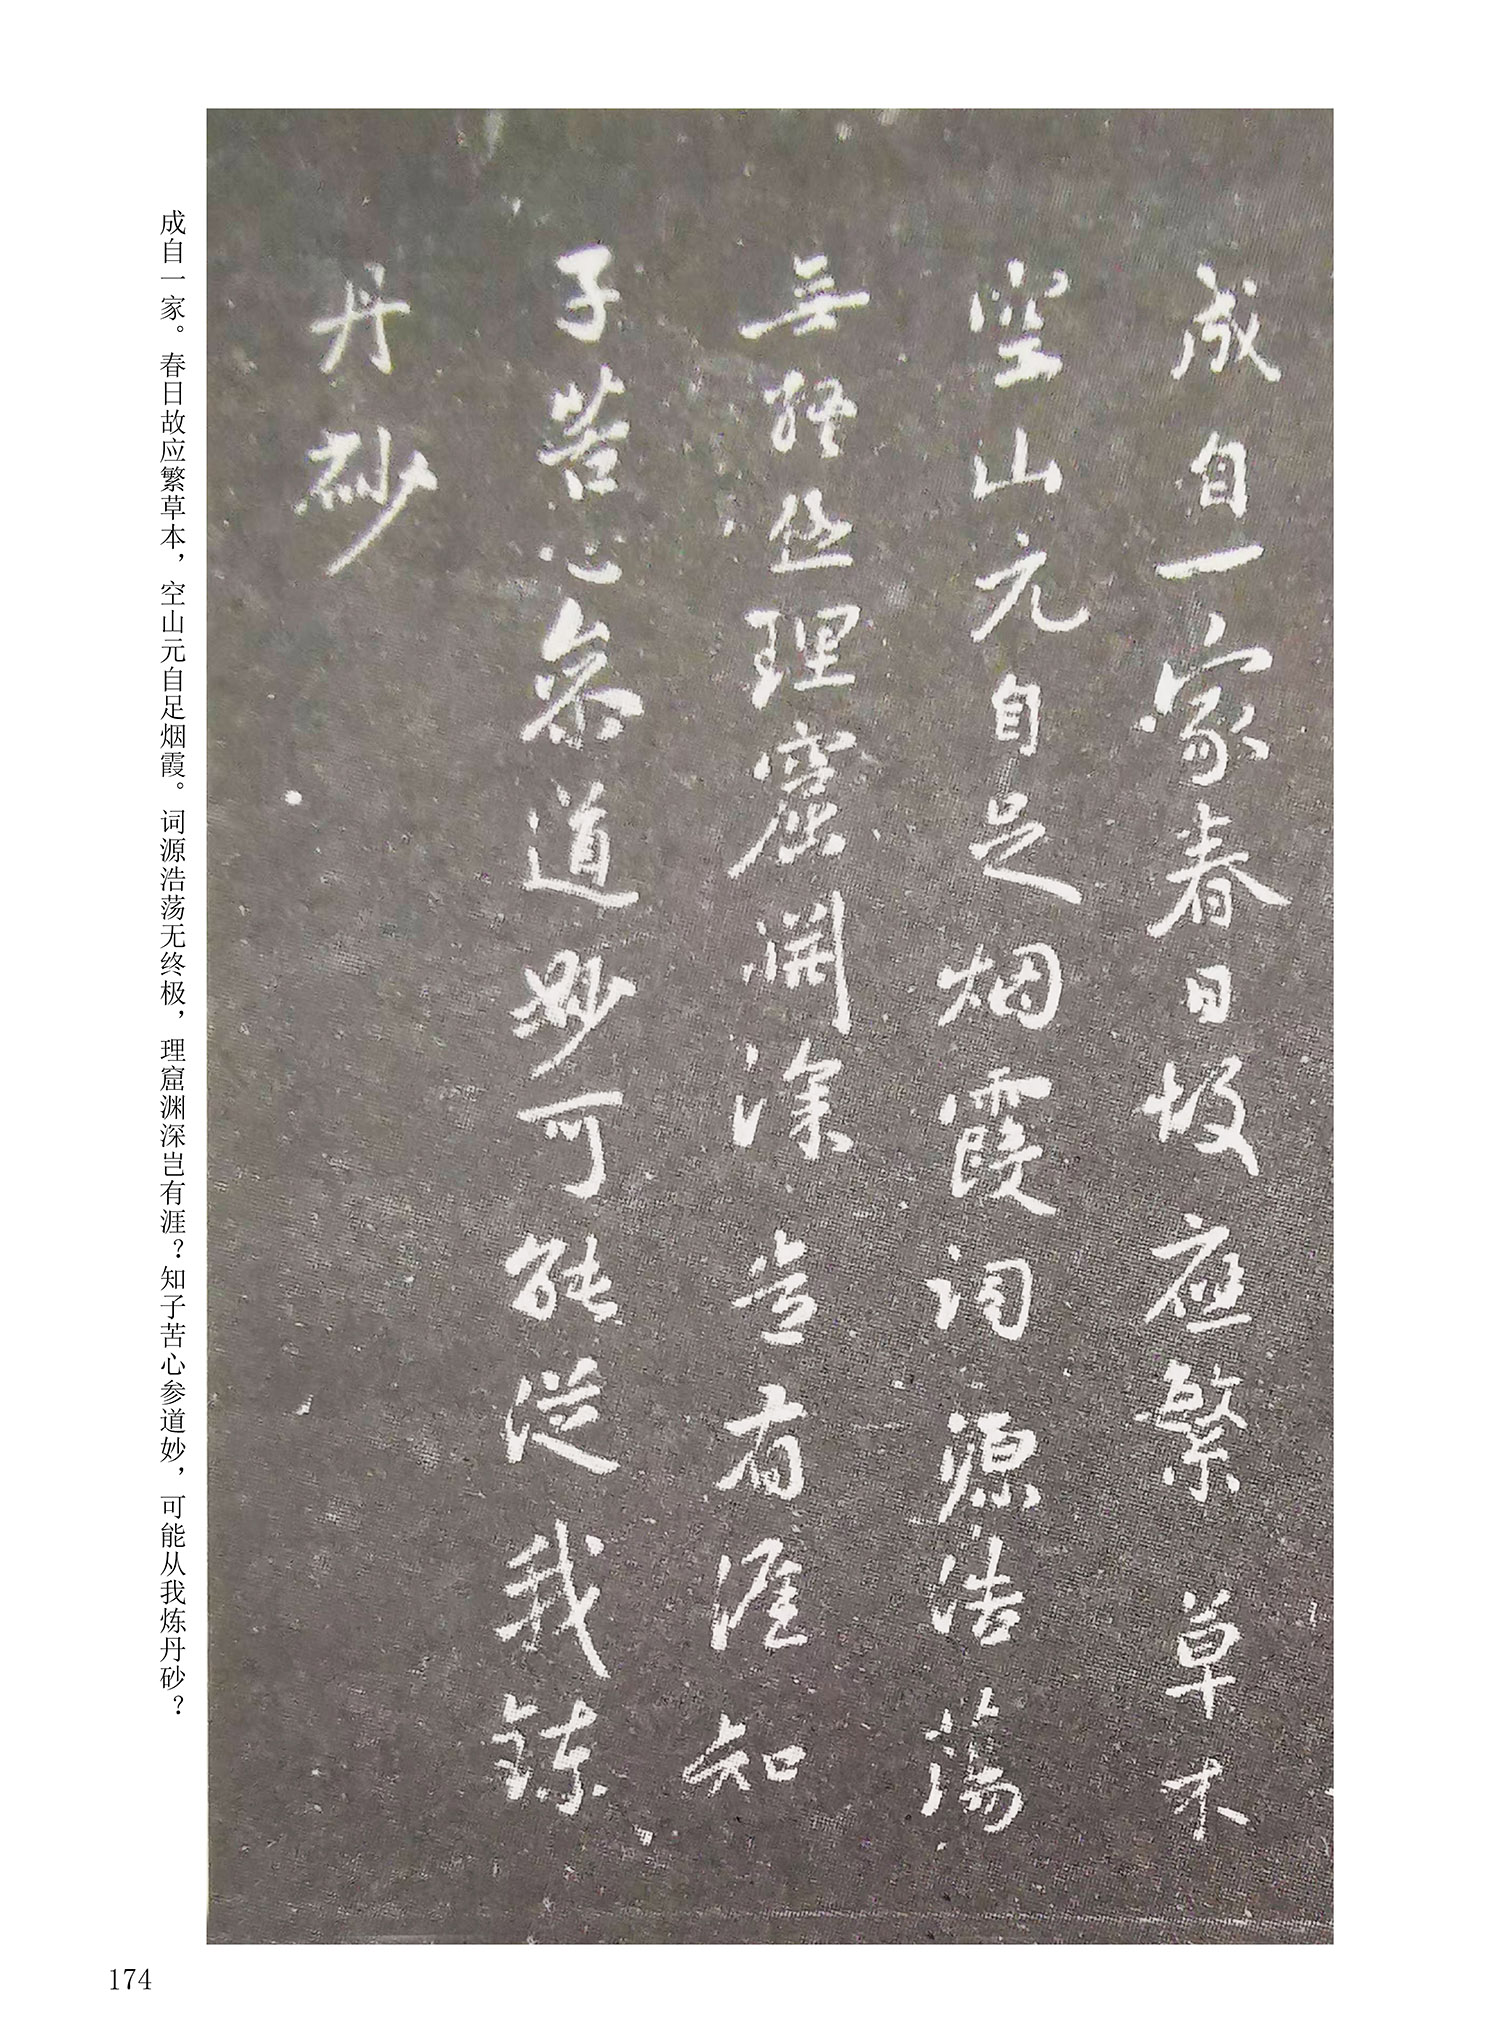 成自一家春日故應繁草木
空山元自足烟霞词源浩蕩
無終極理窟渊深豈有涯知
子苦心叅道妙可能從我鍊
丹砂
成自一家。春日故应繁草本，空山元自足烟霞。词源浩荡无终极，理窟渊深岂有涯？知子苦心参道妙，可能从我炼丹砂？
174